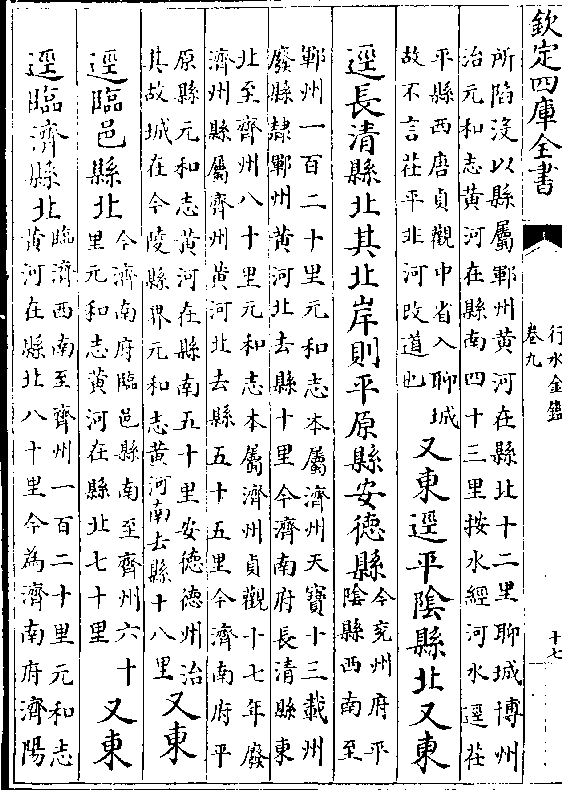 欽定四庫全書
行水金鑑
卷九
十七
所陷沒以縣屬鄆州黃河在縣北十二里聊城博州
治元和志黃河在縣南四十三里按水經河水逕茌
平縣西唐貞觀中省入聊城
故不言茌平非河改道也
又東逕平陰縣北又東
逕長清縣北其北岸則平原縣安德縣
今兗州府平
陰縣西南至
鄆州一百二十里元和志本屬濟州天寶十三載州
廢縣隸鄆州黃河北去縣十里今濟南府長清縣東
北至齊州八十里元和志本屬濟州貞觀十七年廢
濟州縣屬齊州黃河北去縣五十五里今濟南府平
原縣元和志黃河在縣南五十里安德德州治
其故城在今陵縣界元和志黃河南去縣十八里
又東
逕臨邑縣北
今濟南府臨邑縣南至齊州六十
里元和志黃河在縣北七十里
又東
逕臨濟縣北
臨濟西南至齊州一百二十里元和志
黃河在縣北八十里今為濟南府濟陽